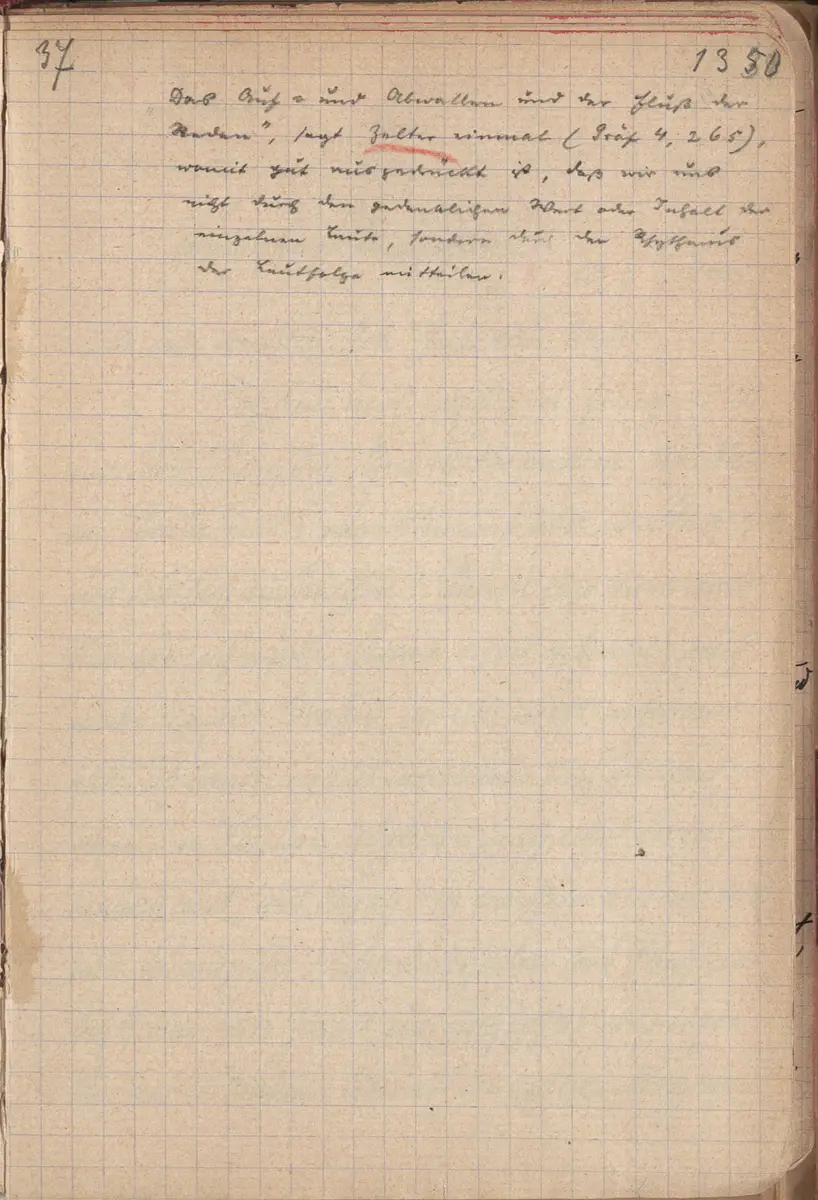 37
1350
„Das Auf- und Abwallen und der Fluß der
Reden", sagt Zelter einmal (Gräf 4, 265),
womit gut ausgedrückt ist, daß wir uns
nicht durch den gedanklichen Wert oder Inhalt der
einzelnen Laute, sondern durch den Rhythmus
der Lautfolge mitteilen.